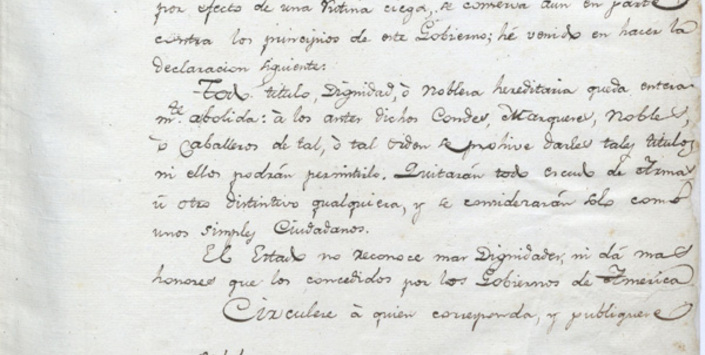 por efecto de una Rutina ciega, se conserva aun en parte
contra los principios de este Gobierno; hé venido en hacer la
declaracion siguiente:
Todo título, Dignidad, ò Nobleza hereditaria queda entera
m.te abolida: à los antes dichos Condes, Marqueses, Nobles,
ò Caballeros de tal, ò tal orden se prohive darles tales titulos,
ni ellos podrán permitirlo. Quitarán todo escudo de Armas
ù otro distintivo qualquiera, y se considerarán solo como
unos simples Ciudadanos.
El Estado no reconoce mas Dignidades, ni dá mas
honores que los concedidos por los Gobiernos de América
Circulese à quien corresponda, y publiquese